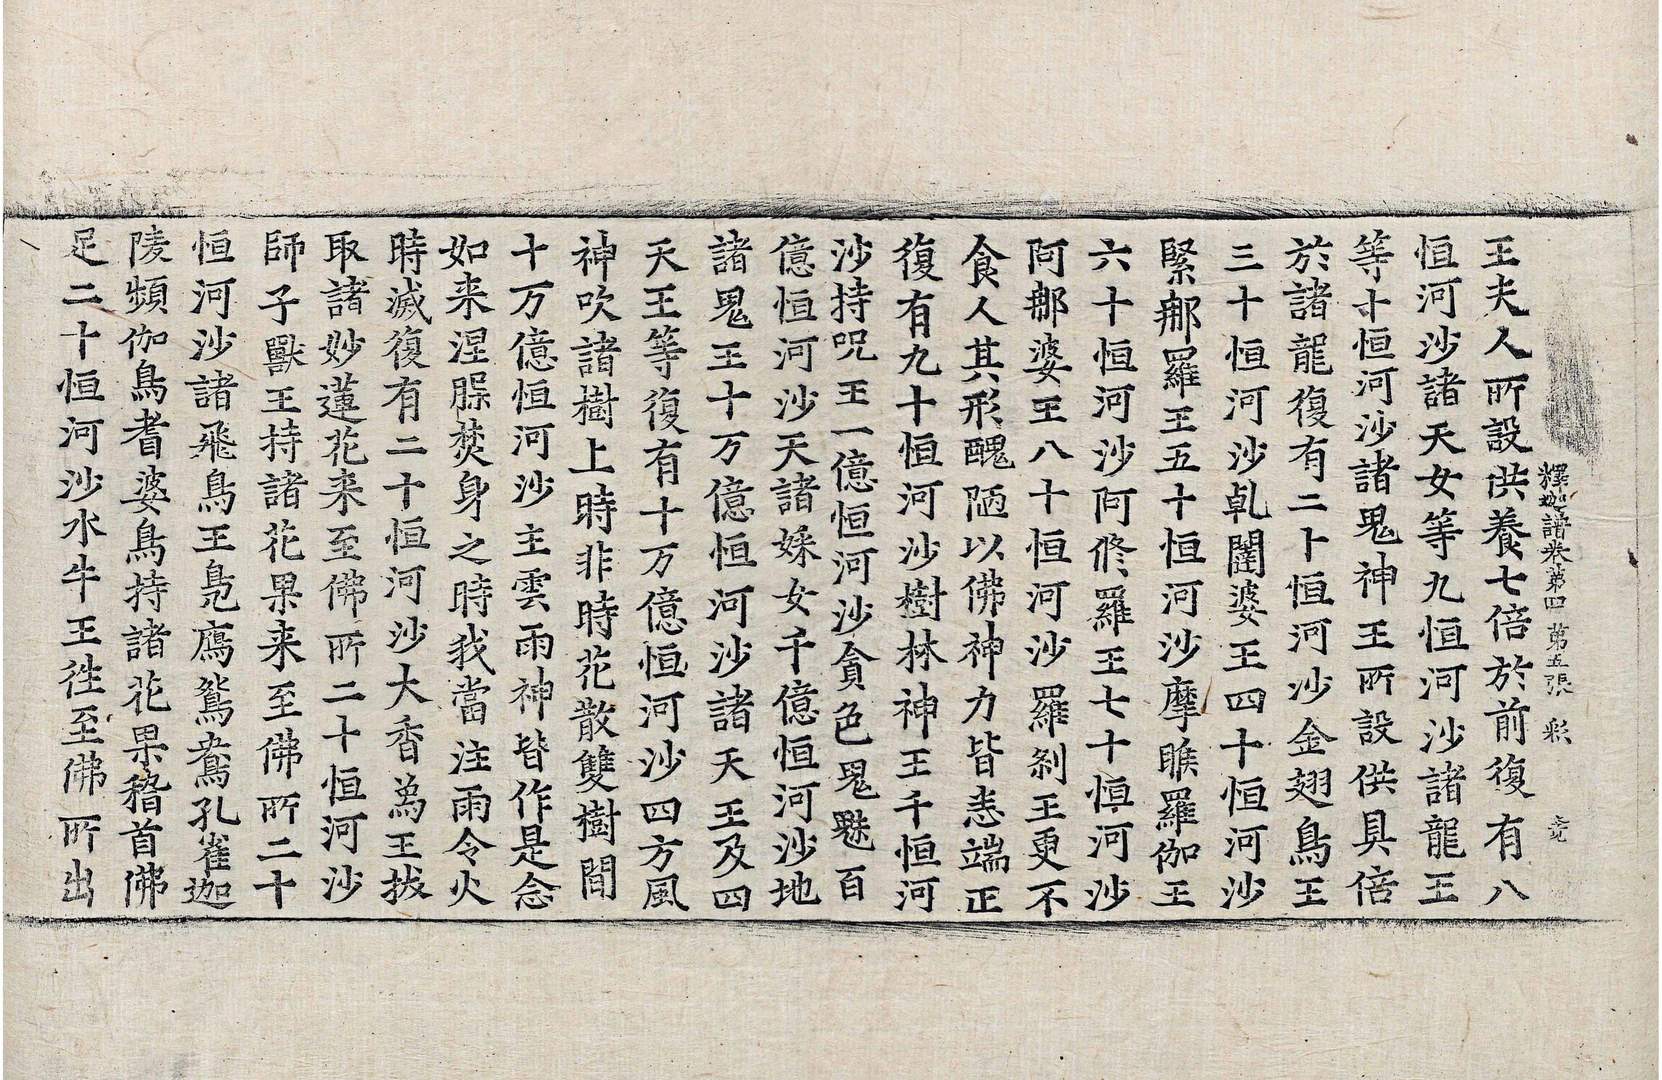 釋迦譜卷第四 第五張 彩
王夫人所設供養七倍於前復有八
恒河沙諸天女等九恒河沙諸龍王
等十恒河沙諸鬼神王所設供具倍
於諸龍復有二十恒河沙金翅鳥王
三十恒河沙乹闥婆王四十恒河沙
緊那羅王五十恒河沙摩睺羅伽王
六十恒河沙阿脩羅王七十恒河沙
阿那婆王八十恒河沙羅剎王更不
食人其形醜陋以佛神力皆悉端正
復有九十恒河沙樹林神王千恒河
沙持呪王一億恒河沙貪色鬼魅百
億恒河沙天諸婇女千億恒河沙地
諸鬼王十万億恒河沙諸天王及四
天王等復有十万億恒河沙四方風
神吹諸樹上時非時花散雙樹間
十万億恒河沙主雲雨神皆作是念
如来涅槃焚身之時我當注雨令火
時滅復有二十恒河沙大香為王拔
取諸妙蓮花来至佛所二十恒河沙
師子獸王持諸花果来至佛所二十
恒河沙諸飛鳥王鳧鴈鴛鴦孔雀迦
陵頻伽鳥耆婆鳥持諸花果稽首佛
足二十恒河沙水牛王往至佛所出